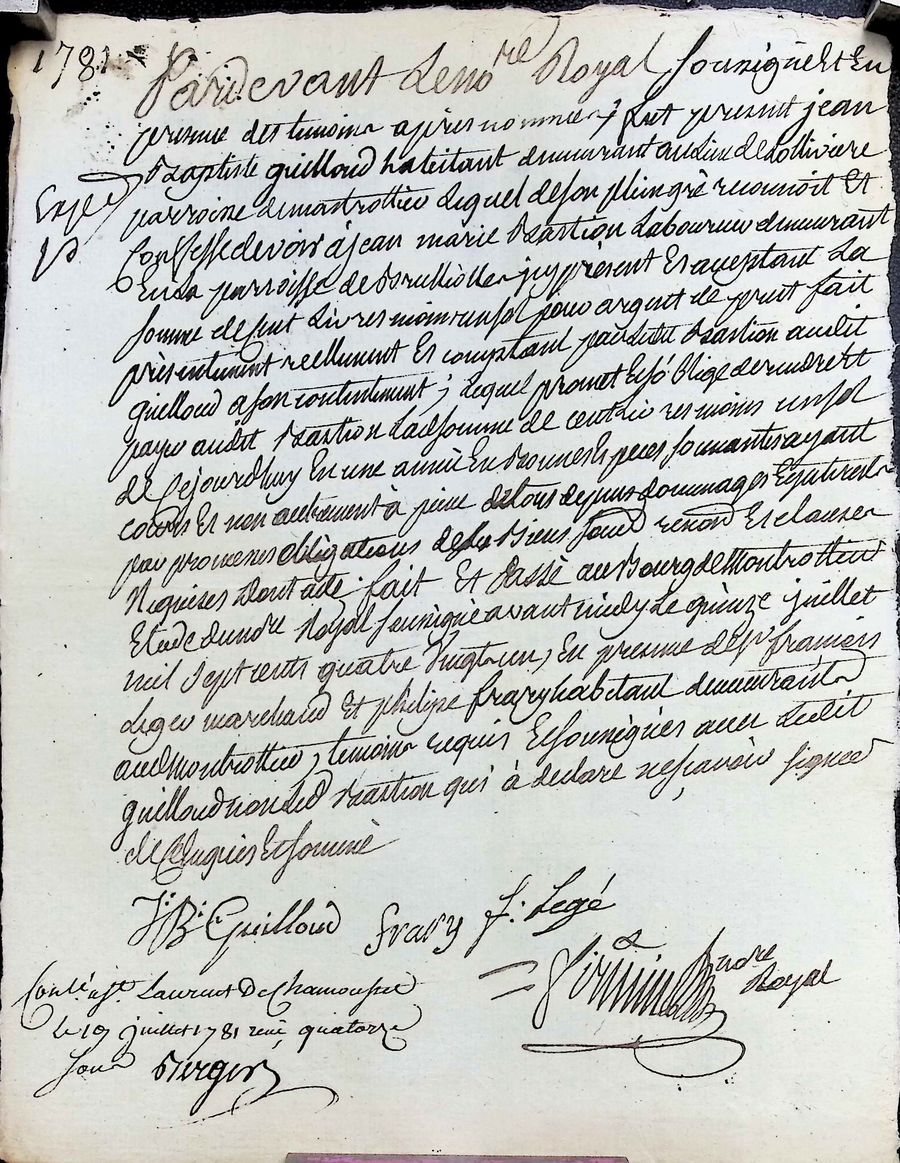 1781
Pardevant Le no.re Royal soussigné Et En
presence des temoins après nommés, fut present jean
Baptiste guilloud habitant demeurant au Lieu de
parroisse de montrottier Lequel de son plein gré reconnoit Et
Confesse devoir à jean marie Bastion Laboureur demeurant
En La parroisse de Brullioles jcy présent Et acceptant La
somme de Cent Livres moins un sol pour argent de prest fait
présentement réellement Et comptant par Ledit Bastion audit
guilloud a son contentement; Lequel promet Et s'oblige de rendre Et
payer audit Bastion Lad somme de cent Livres moins un sol
de Ce jourdhuy En une année En Bonnes Especes sonnantes ayant
cours Et non autrement à peine de tous depens dommages Et
par promesses obligations de ses Biens soud renond Et clauses
Requises Dont acte fait Et Passé au Bourg de Montrottier
Etude du no.re Royal soussigné avant midy Le quinze juillet
mil sept cents quatre Vingt un, En presence de s.r francois
Leger marchand Et philipe frary habitant demeurants
aud montrottier, temoins requis Et soussignés avec Ledit
guilloud non Led Bastion qui à declaré ne sçavoir signer
de Ce Enquis Et sommé
Exped
J: B: Guilloud frary f: Legé
no.re Royal
Cont.lé a S.t Laurent De Chamousset
Le 19 juillet 1781 reçu quatorze
sous Berger